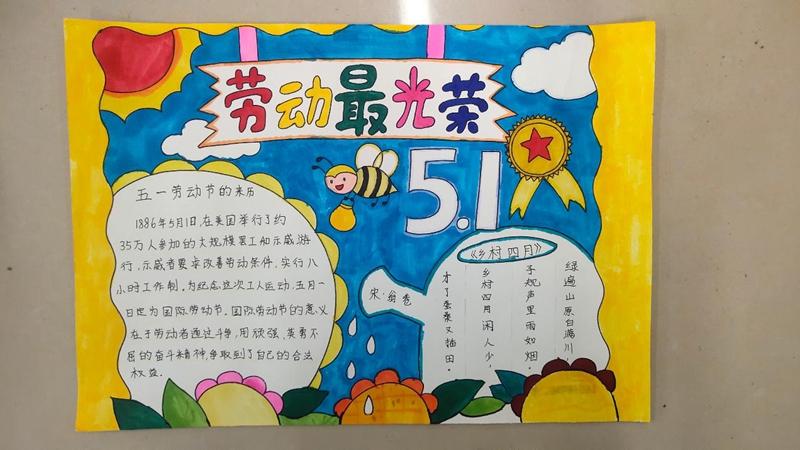 劳动最光荣
5.1
五一劳动节的来历
1886年5月1日,在美国举行了约
35万人参加的大规模罢工和示威游
行,示威者要求改善劳动条件,实行八
小时工作制,为纪念这次工人运动,五月一
日也为国际劳动节,国际劳动节的意义
在于劳动者通过斗争,用顽强、英勇不
屈的奋斗精神,争取到了自己的合法
权益.
《乡村四月》
宋·翁卷
绿遍山原白满川,
子规声里雨如烟。
乡村四月闲人少,
才了蚕桑又插田。